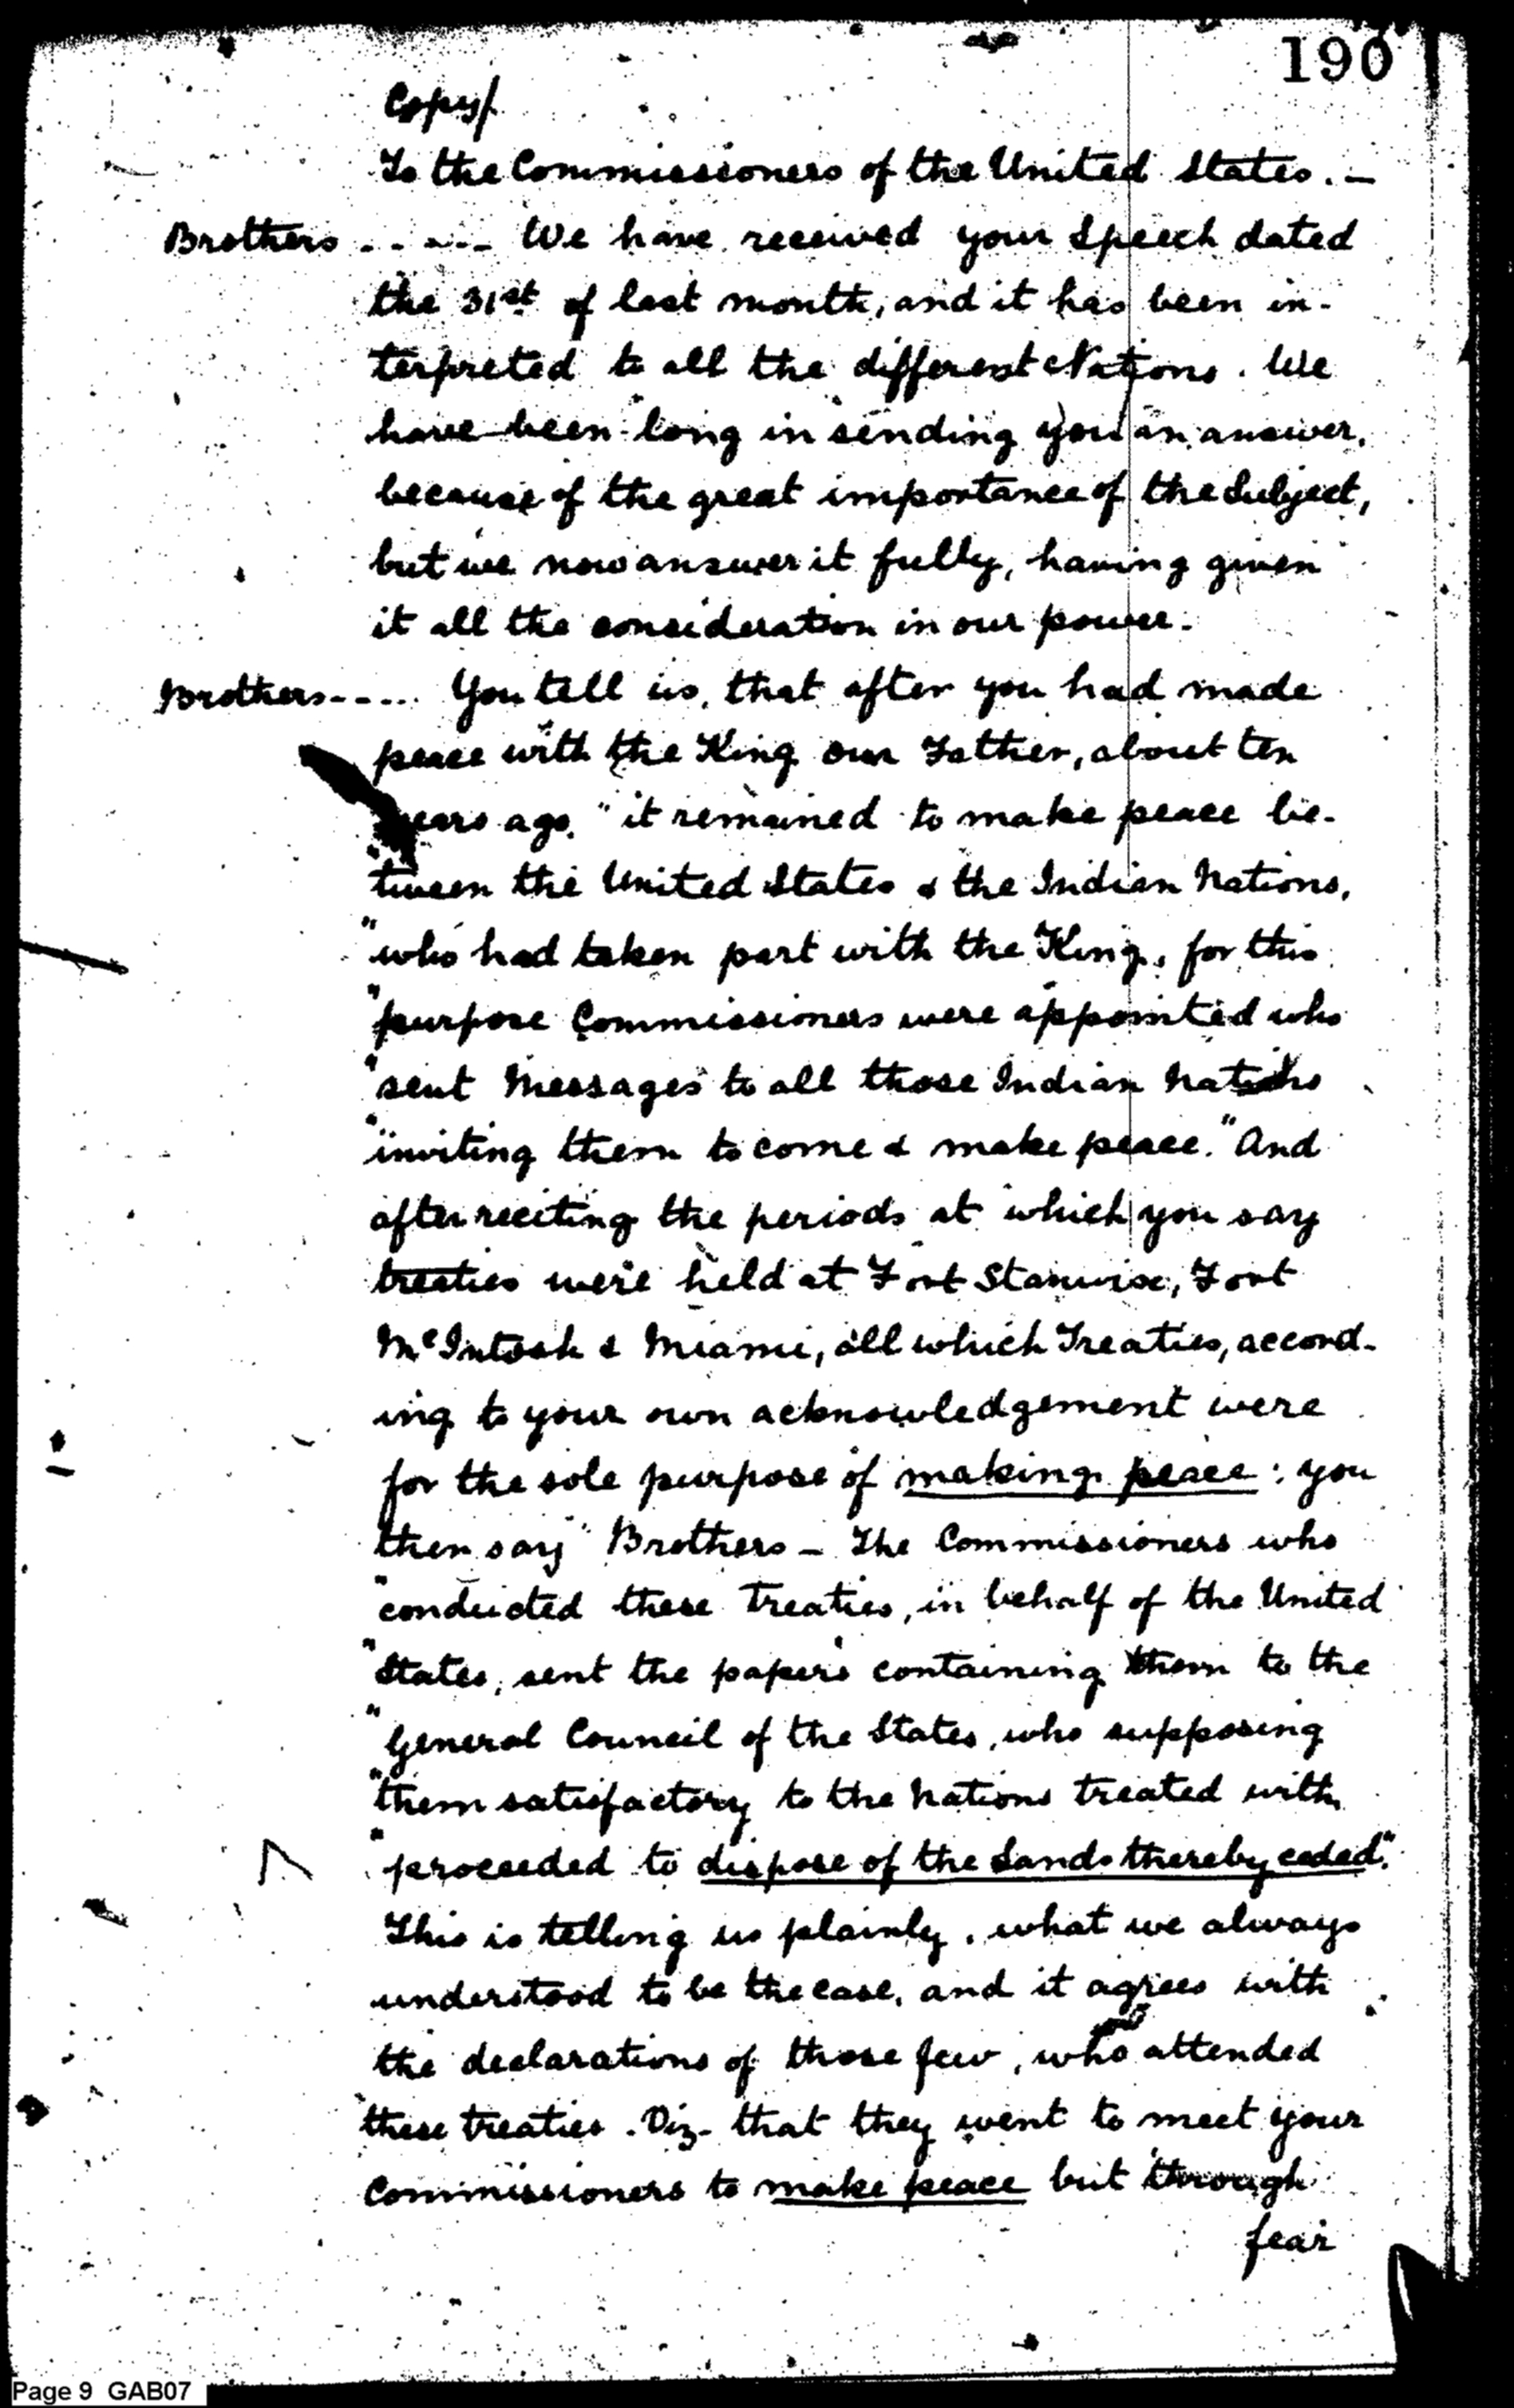 190
Copy/
To the Commissioners of the United States. –
Brothers ----- We have received your Speech dated
the 31st of last month, and it has been in-
terpreted to all the different Nations. We
have been long in sending you an answer,
because of the great importance of the Subject,
but we now answer it fully, having given
it all the consideration in our power.
Brothers----- You tell us, that after you had made
peace with the King our Father, about ten
years ago, "it remained to make peace be-
"tween the United States & the Indian Nations,
"who had taken part with the King, for this
"purpose Commissioners were appointed who
"sent Messages to all those Indian Nations
"inviting them to come & make peace." And
after reciting the periods at which you say
treaties were held at Fort Stanwise, Fort
McIntosh & Miami, all which Treaties, accord-
ing to your own acknowledgement were
for the sole purpose of making peace: you
then say "Brothers – The Commissioners who
"conducted these Treaties, in behalf of the United
"States, sent the papers containing them to the
"General Council of the States, who supposing
"them satisfactory to the Nations treated with,
"proceeded to dispose of the Lands thereby ceded."
This is telling us plainly, what we always
understood to be the case, and it agrees with
the declarations of those few, who attended
these treaties. Viz- that they went to meet your
Commissioners to make peace but through
fear
Page 9 GAB07